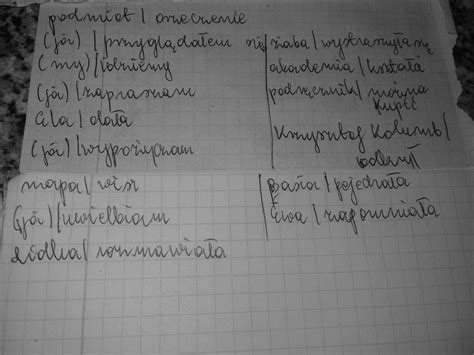 podmiot / orzeczenie
(ja) / przyglądałem się
(my) / idziemy
(ja) / zapraszam
Ala / dała
(ja) / wypożyczam
mapa / wisi
(ja) / uwielbiam
rozmawiała
żaba / wystraszyła się
akademia / kształci
podręcznik / można
kupić
Krzysztof Kolumb /
odkrył
Basia / pojechała
Ewa / zapomniała